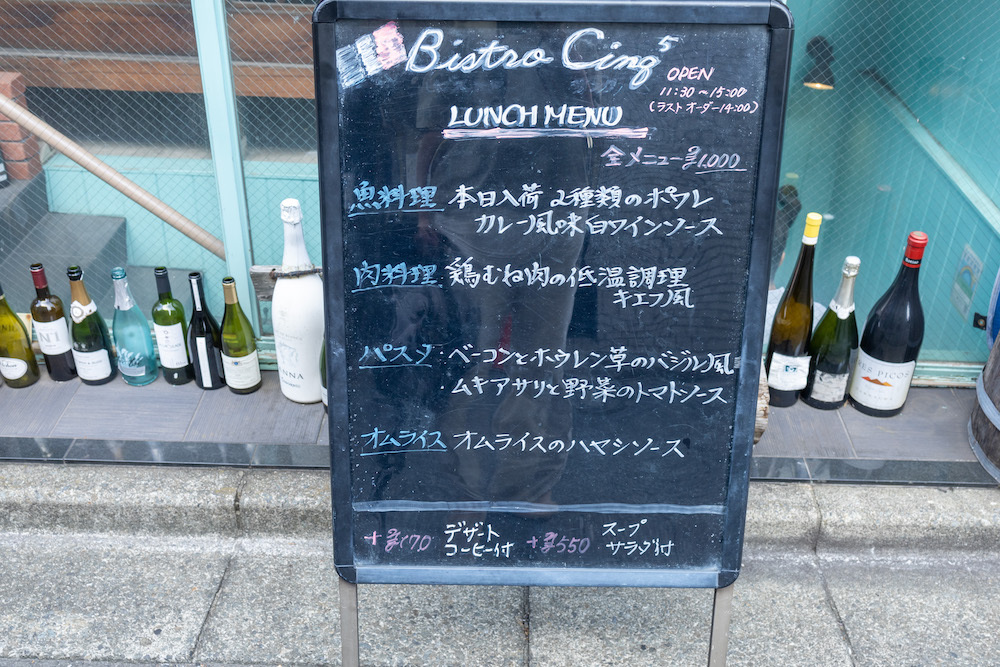 Bistro Cinq 5
OPEN
11:30～15:00
(ラストオーダー14:00)
LUNCH MENU
全メニュー ¥1,000
魚料理 本日入荷 2種類のポワレ
カレー風味白ワインソース
肉料理 鶏むね肉の低温調理
キエフ風
パスタ ・ベーコンとホウレン草のバジル風
・ムキアサリと野菜のトマトソース
オムライス オムライスのハヤシソース
+¥170 デザート
コーヒー付
+¥550 スープ
サラダ付